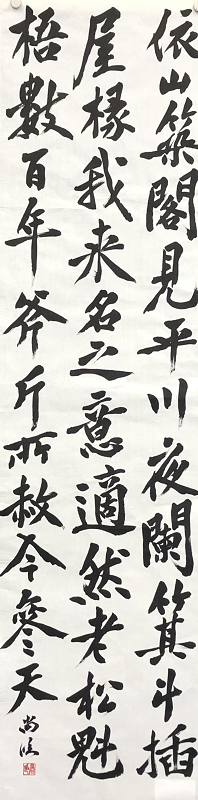 依山築閣見平川夜闌箕斗插
屋椽我来名之意適然老松魁
梧數百年斧斤所赦今參天